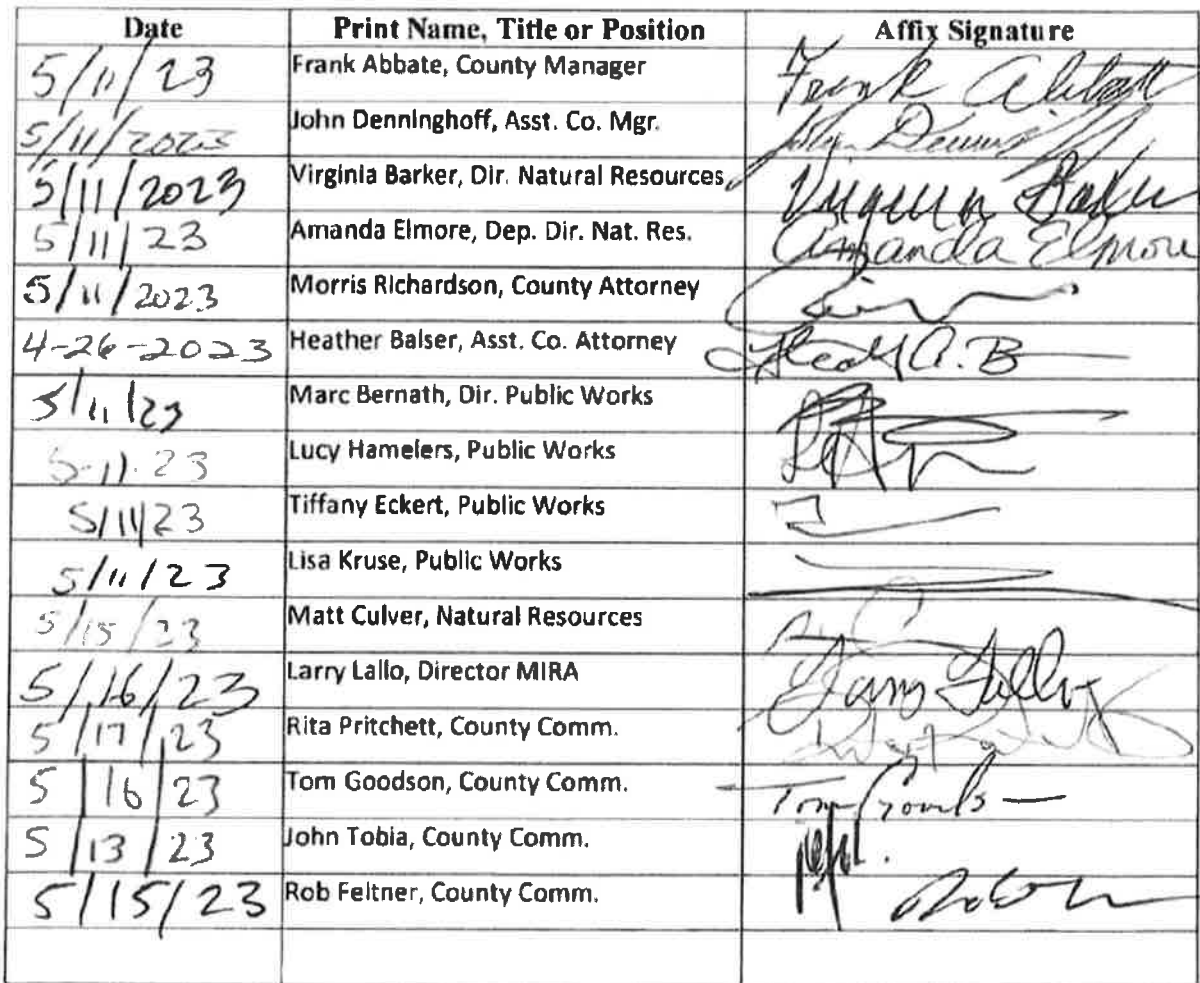 Date Print Name, Title or Position Affix Signature
5/11/23 Frank Abbate, County Manager Frank Abbate
5/11/2023 John Denninghoff, Asst. Co. Mgr. John Denning
5/11/2023 Virginia Barker, Dir. Natural Resources Virginia Barker
5/11/23 Amanda Elmore, Dep. Dir. Nat. Res. Amanda Elmore
5/11/2023 Morris Richardson, County Attorney
4-26-2023 Heather Balser, Asst. Co. Attorney A. B
5/11/23 Marc Bernath, Dir. Public Works
5-11-23 Lucy Hamelers, Public Works
5/11/23 Tiffany Eckert, Public Works
5/11/23 Lisa Kruse, Public Works
5/15/23 Matt Culver, Natural Resources
5/16/23 Larry Lallo, Director MIRA Larry Lallo
5/17/23 Rita Pritchett, County Comm.
5/16/23 Tom Goodson, County Comm. Tom
5/13/23 John Tobia, County Comm.
5/15/23 Rob Feltner, County Comm.